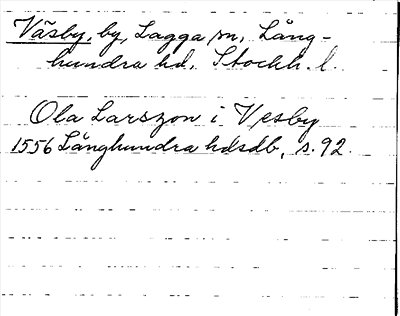 Väsby, by, Lagga sn, Lång-
hundra hd, Stockh. l.
Ola Larszon i Vesby
1556 Långhundra hdsdb, s. 92.